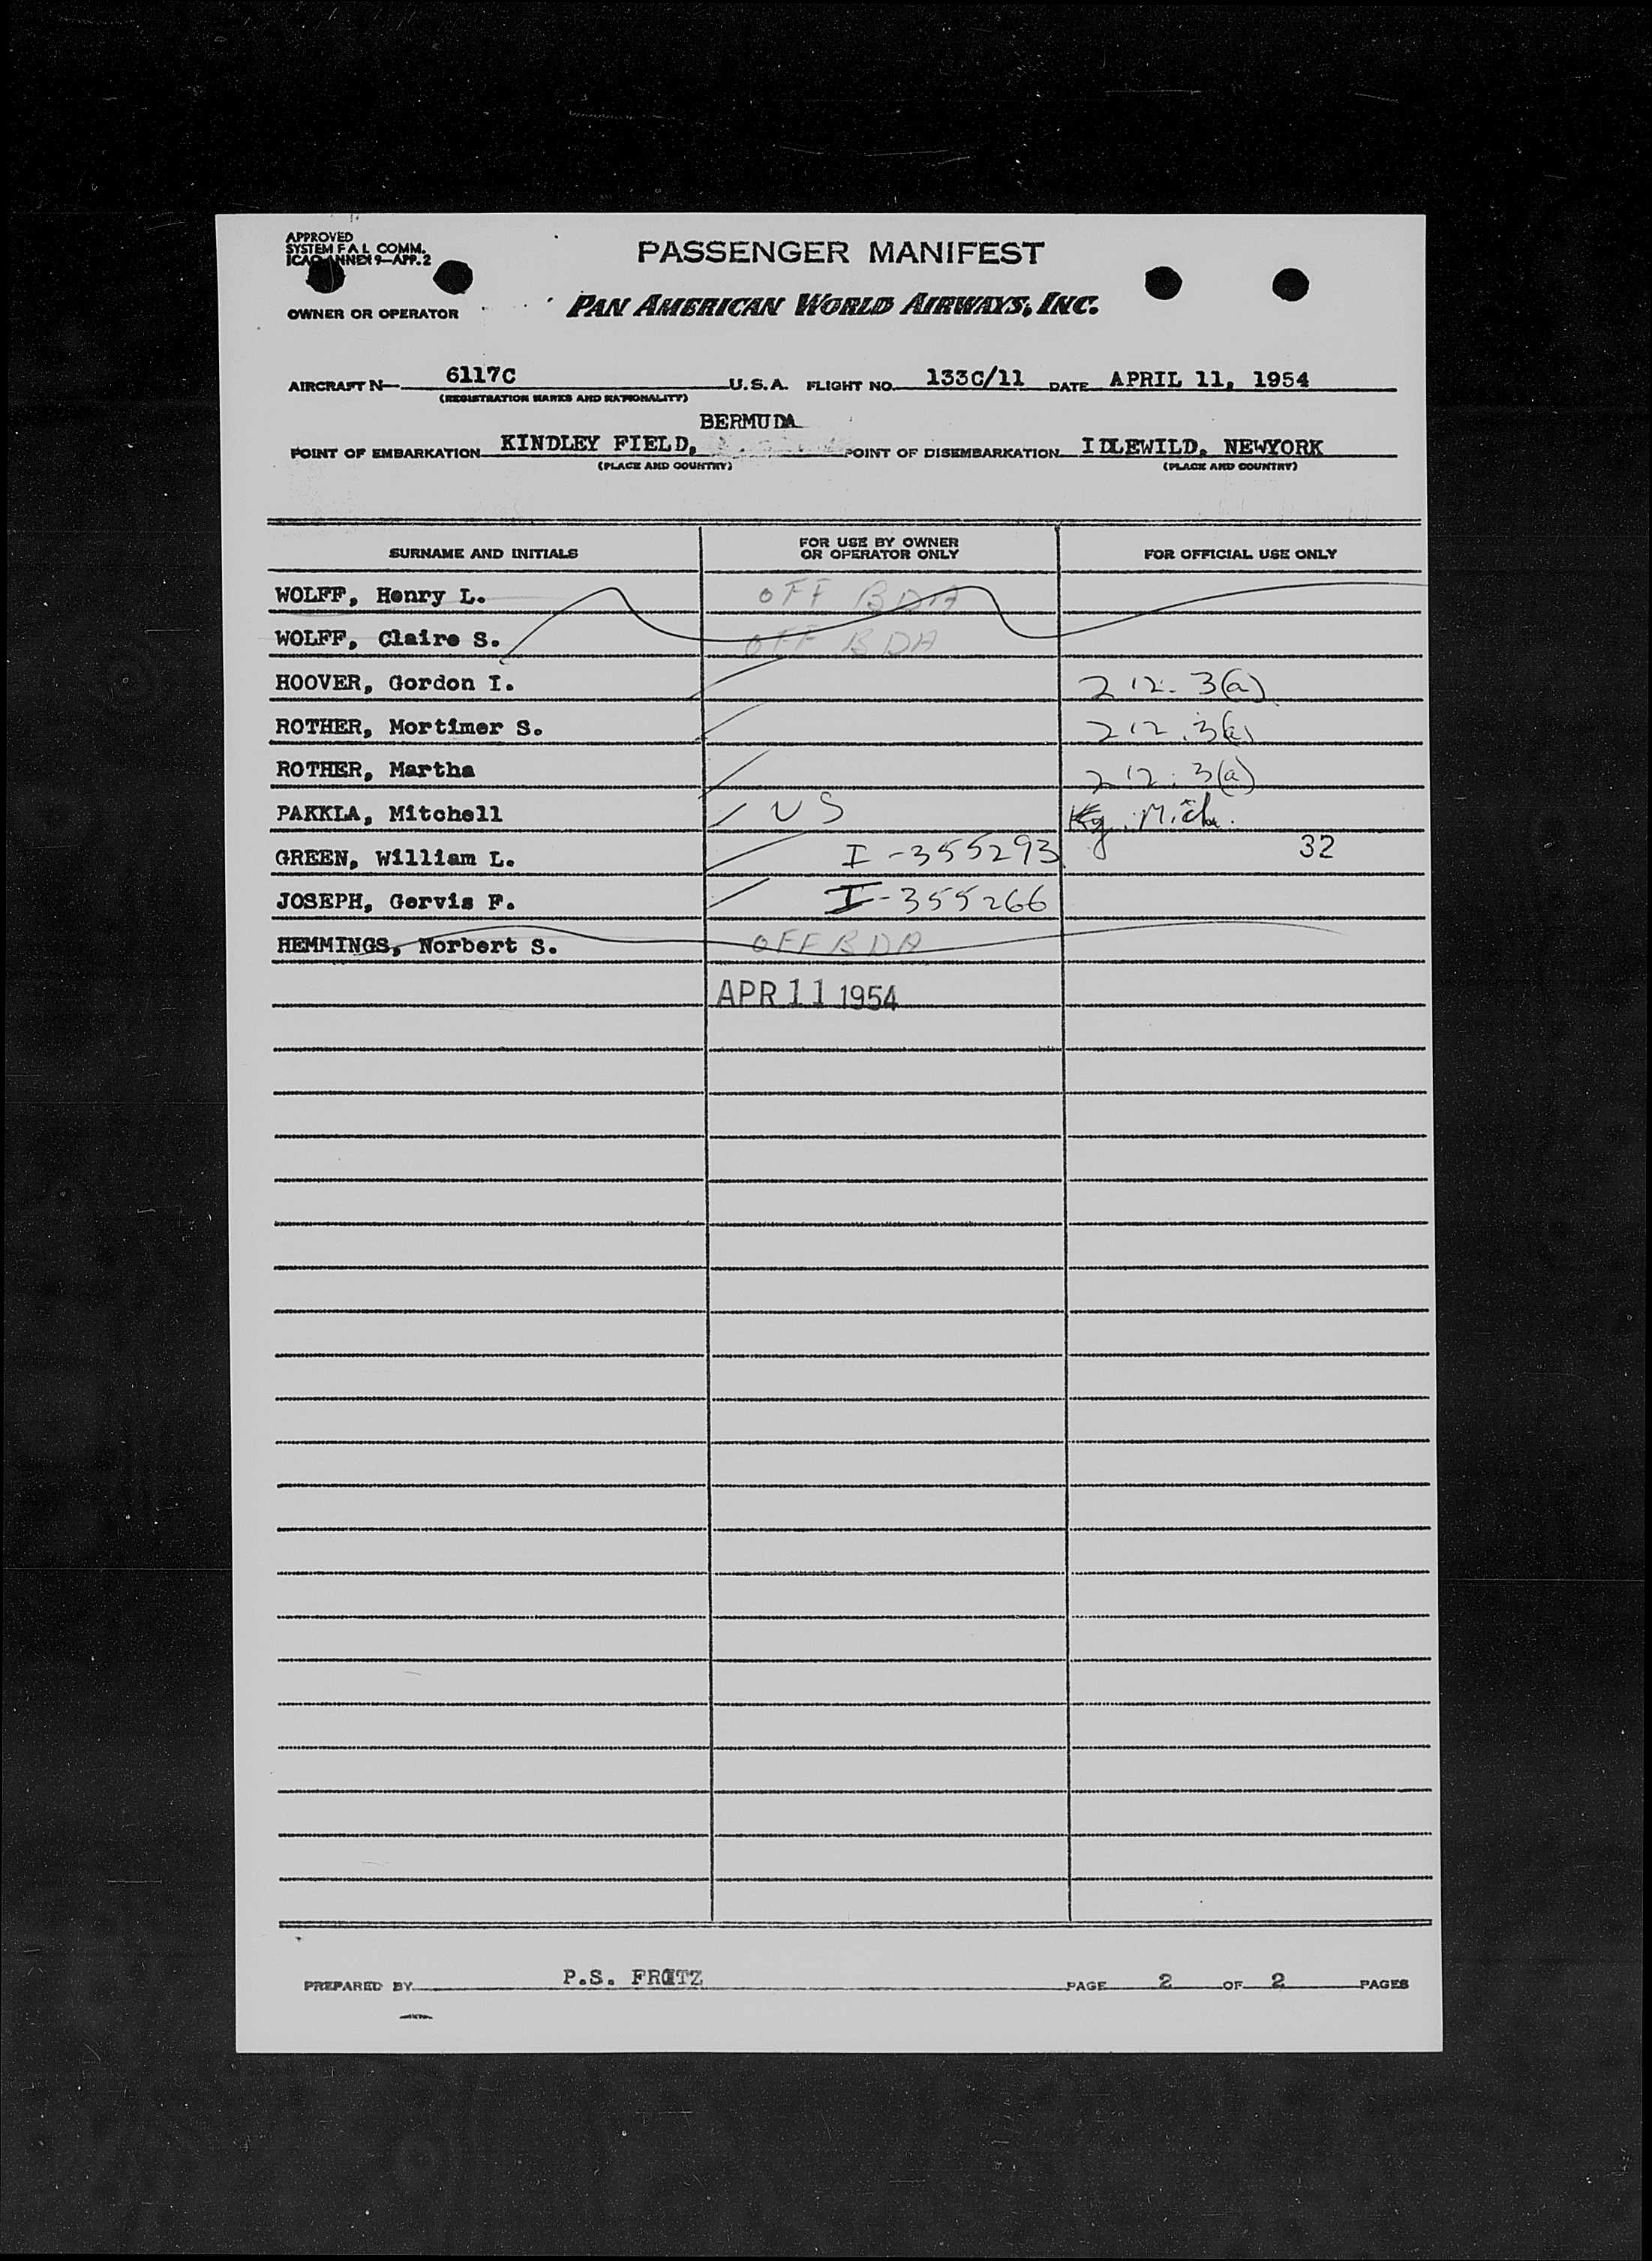 APPROVED
SYSTEM F A L COMM.
ICAO ANNEX 9—APP. 2
PASSENGER MANIFEST
OWNER OR OPERATOR PAN AMERICAN WORLD AIRWAYS, INC.
AIRCRAFT N— 6117C U.S.A. FLIGHT NO. 133C/11 DATE APRIL 11, 1954
(REGISTRATION MARKS AND NATIONALITY)
BERMUDA
POINT OF EMBARKATION KINDLEY FIELD, POINT OF DISEMBARKATION IDLEWILD, NEWYORK
(PLACE AND COUNTRY) (PLACE AND COUNTRY)
SURNAME AND INITIALS FOR USE BY OWNER OR OPERATOR ONLY FOR OFFICIAL USE ONLY
WOLFF, Henry L. OFF BDA
WOLFF, Claire S. OFF BDA
HOOVER, Gordon I. 212.3(a)
ROTHER, Mortimer S. 212.3(a)
ROTHER, Martha 212.3(a)
PAKKLA, Mitchell US Mich.
GREEN, William L. I-355293 32
JOSEPH, Gervis F. I-355266
HEMMINGS, Norbert S. OFF BDA
APR 11 1954
PREPARED BY P.S. PAGE 2 OF 2 PAGES